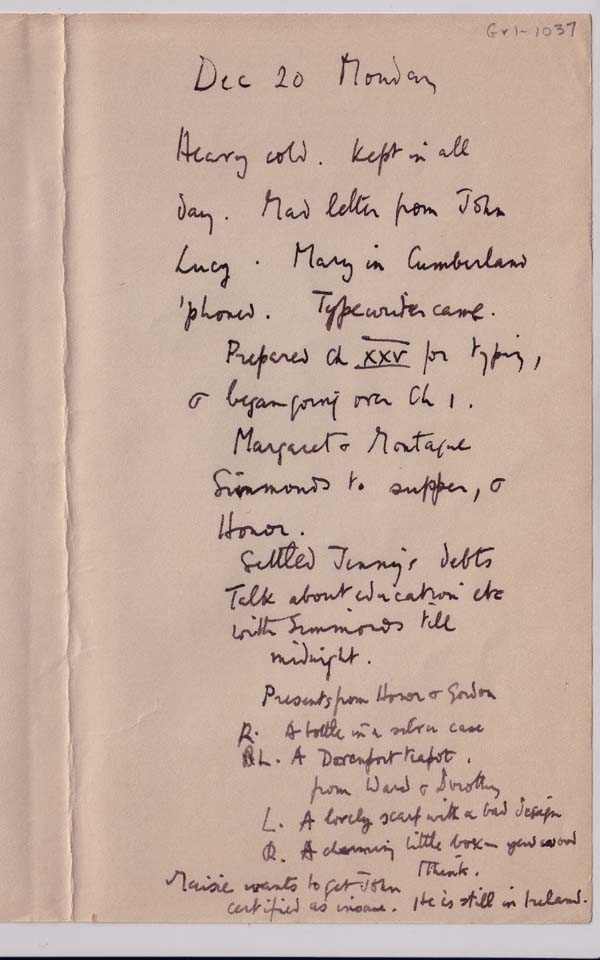 Gv1-1037
Dec 20 Monday
Heavy cold. Kept in all
day. Mad letter from John
Lucy. Mary in Cumberland
'phoned. Typewriter came.
Prepared Ch XXV for typing,
& began going over Ch 1.
Margaret & Montague
Simmonds to supper, &
Honor.
Settled Jenny's debts
Talk about education etc
with Simmonds till
midnight.
Presents from Honor & Gordon
R. A bottle in a silver case
L. A Davenport teapot.
from Ward & Dorothy
L. A lovely scarf with a bad design
R. A charming little box – yew wood
I think.
Maisie wants to get John
certified as insane. He is still in Ireland.